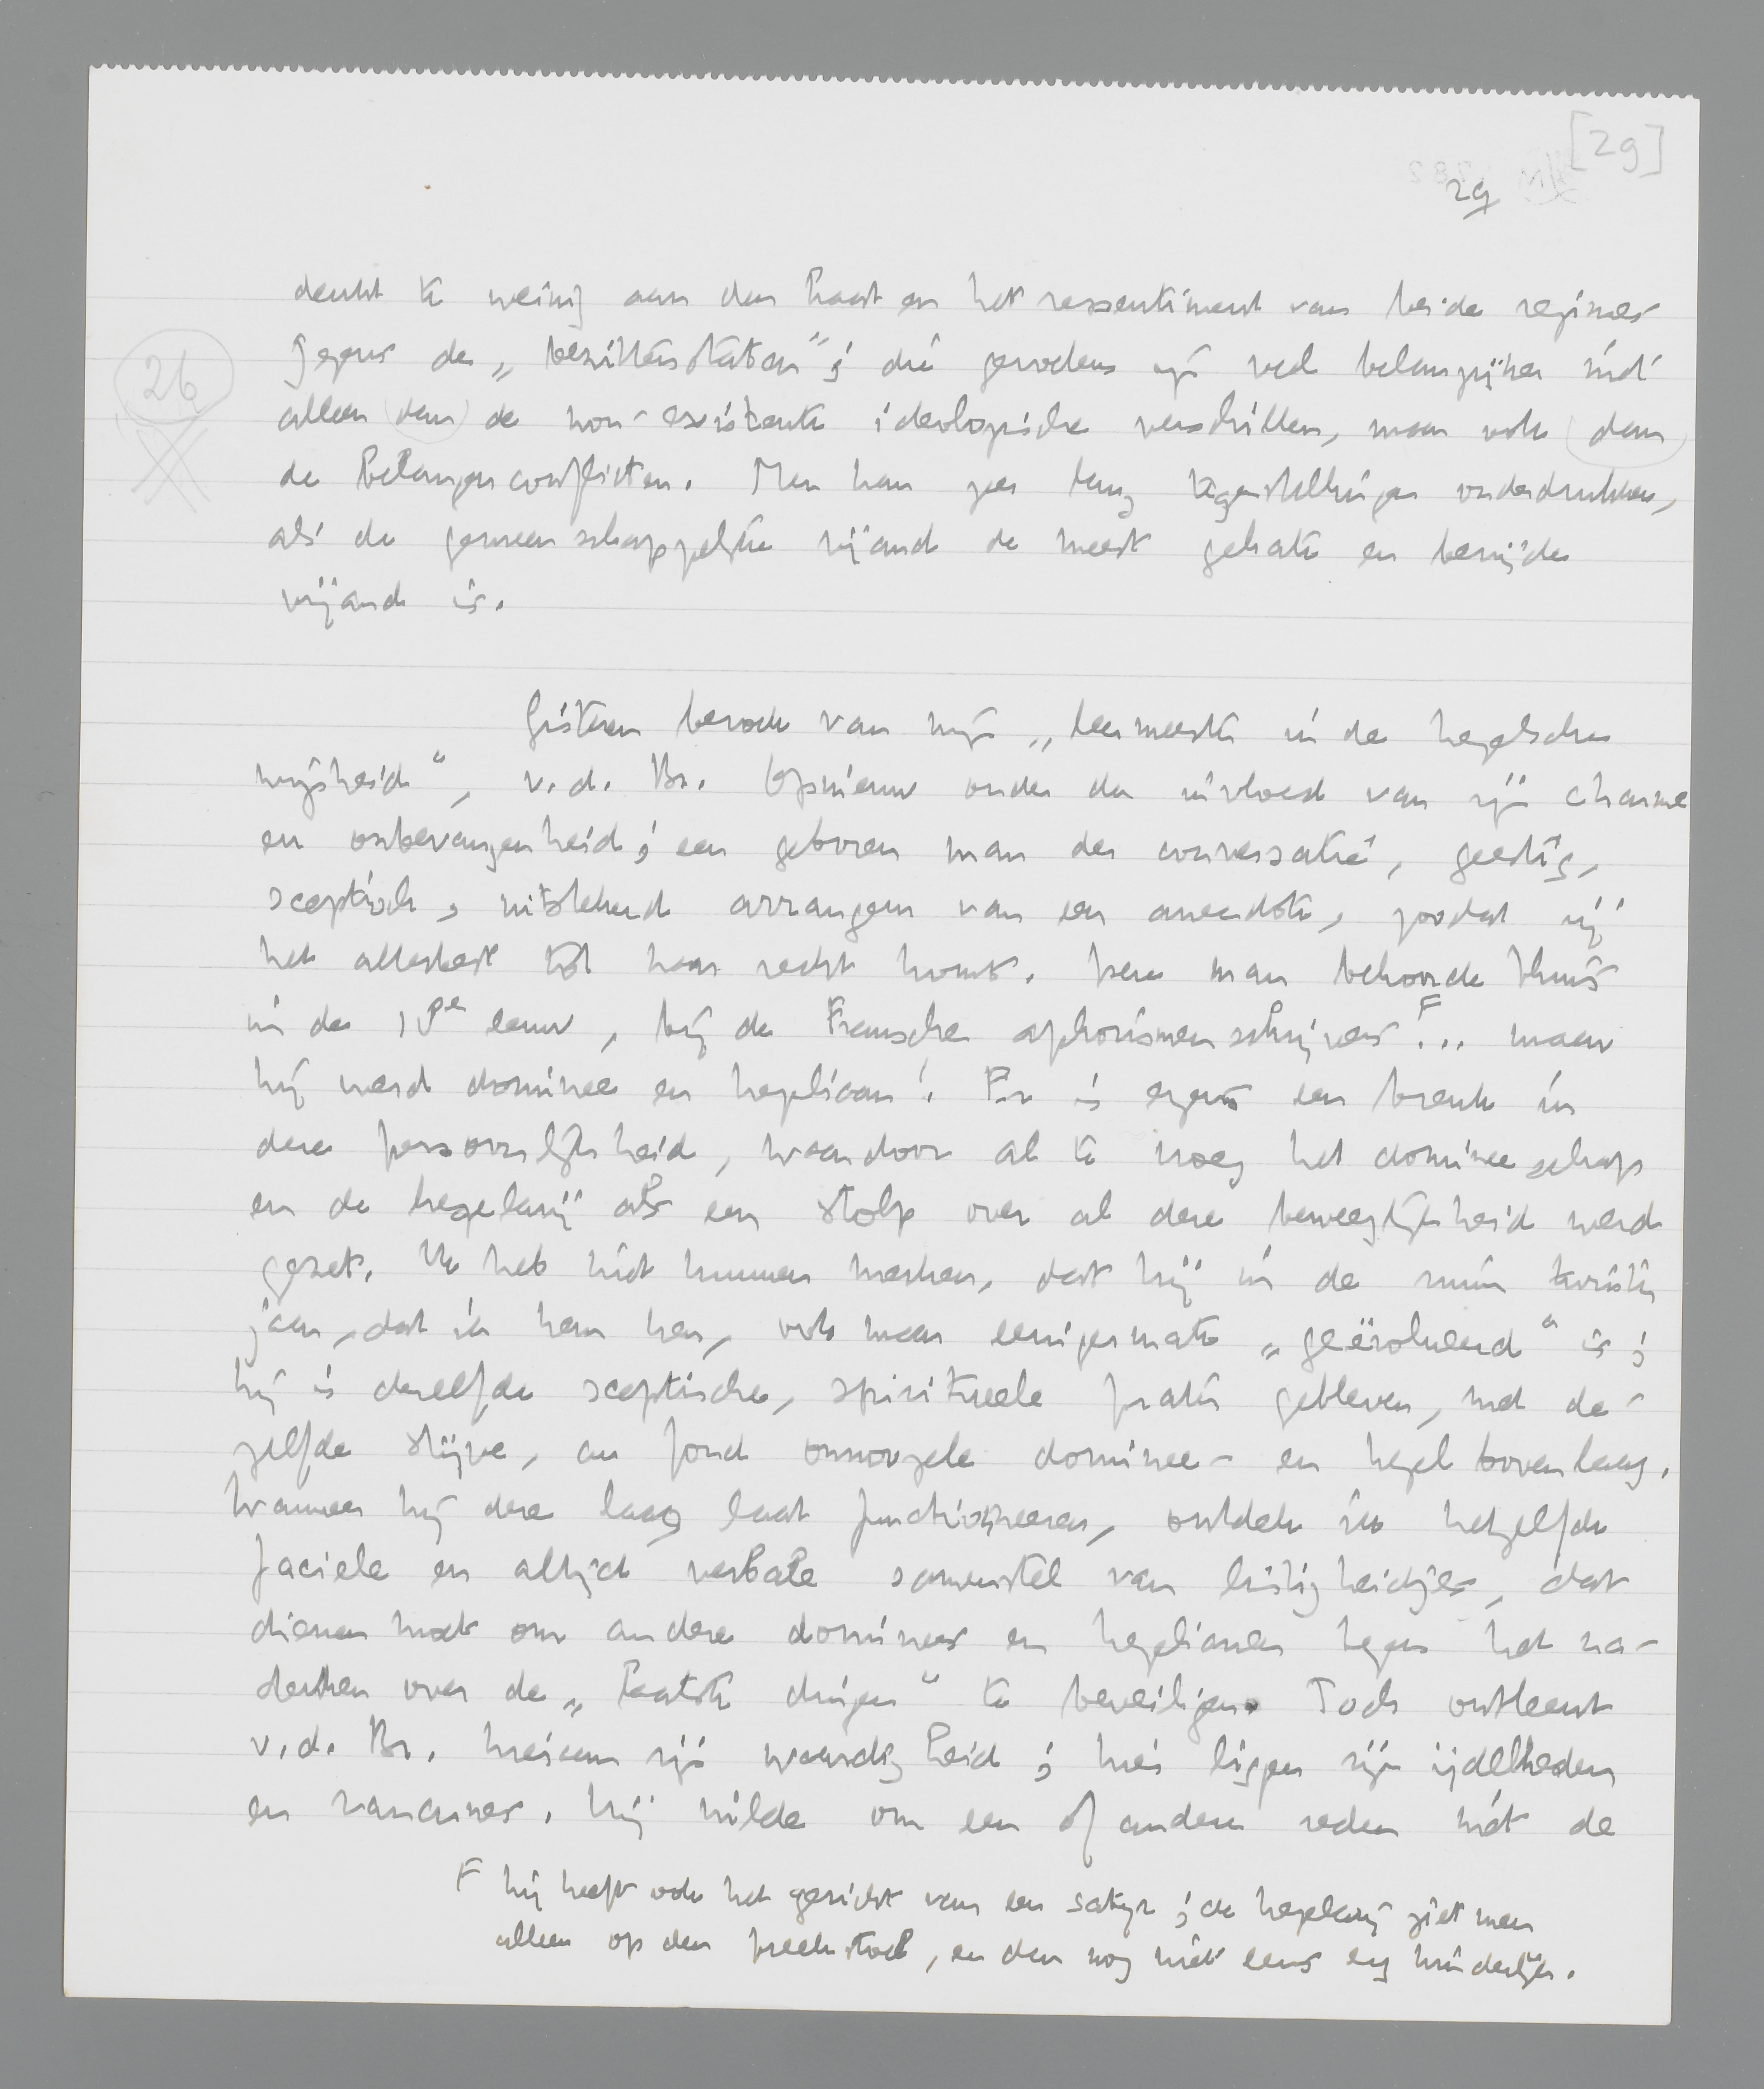 [29]
29
denkt te weinig aan den haat en het ressentiment van beide regimes
jegens de „bezittersstaten"; die gevoelens zijn veel belangrijker niet
26
alleen dan de non-existente ideologische verschillen, maar ook dan
de belangenconflicten. Men kan zeer lang tegenstellingen onderdrukken,
als de gemeenschappelijke vijand de meest gehate en benijde
vijand is.
Gisteren bezoek van mijn „leermeester in de hegelsche
wijsheid", v.d. Br. Opnieuw onder den invloed van zijn charme
en onbevangenheid; een geboren man der conversatie, geestig,
sceptisch, uitstekend arrangeur van een anecdote, zoodat zij
het allerbest tot haar recht komt. Deze man behoorde thuis
in de 18e eeuw, bij de Fransche aphorismenschrijvers F... maar
hij werd dominee en hegeliaan! Er is ergens een breuk in
deze persoonlijkheid, waardoor al te vroeg het domineeschap
en de hegelarij als een stolp over al deze beweeglijkheid werd
gezet. Ik heb niet kunnen merken, dat hij in de ruim twintig
jaar, dat ik hem ken, ook maar eenigermate „geëvolueerd" is;
hij is dezelfde sceptische, spiritueele prater gebleven, met de-
zelfde stijve, au fond onnoozele dominee- en hegel bovenlaag.
Wanneer hij deze laag laat functionneeren, ontdek ik hetzelfde
faciele en altijd verbale samenstel van listigheidjes, dat
dienen moet om andere dominees en hegelianen tegen het na-
denken over de „laatste dingen" te beveiligen. Toch ontleent
v.d. Br. hieraan zijn waardigheid; hier liggen zijn ijdelheden
en rancunes. Hij wilde om een of andere reden niet de
F hij heeft ook het gezicht van een satyr; de hegelarij ziet men
alleen op den preekstoel, en dan nog niet eens erg hinderlijk.